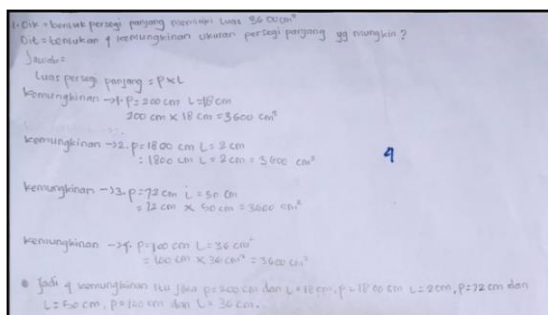 1. Dik = bentuk persegi panjang memiliki luas 3600 cm²
Dit = tentukan 4 kemungkinan ukuran persegi panjang yg mungkin?
Jawab =
Luas persegi panjang = P x L
Kemungkinan → 1. P = 200 cm L = 18 cm
200 cm x 18 cm = 3600 cm²
Kemungkinan → 2. P = 1800 cm L = 2 cm
: 1800 cm L = 2 cm = 3600 cm²
4
Kemungkinan → 3. P = 72 cm L = 50 cm
= 72 cm x 50 cm = 3600 cm²
Kemungkinan → 4. P = 100 cm L = 36 cm²
= 100 cm x 36 cm² = 3600 cm²
Jadi 4 kemungkinan itu jika P = 200 cm dan L = 18 cm, P = 1800 cm L = 2 cm, P = 72 cm dan
L = 50 cm, P = 100 cm dan L = 36 cm.